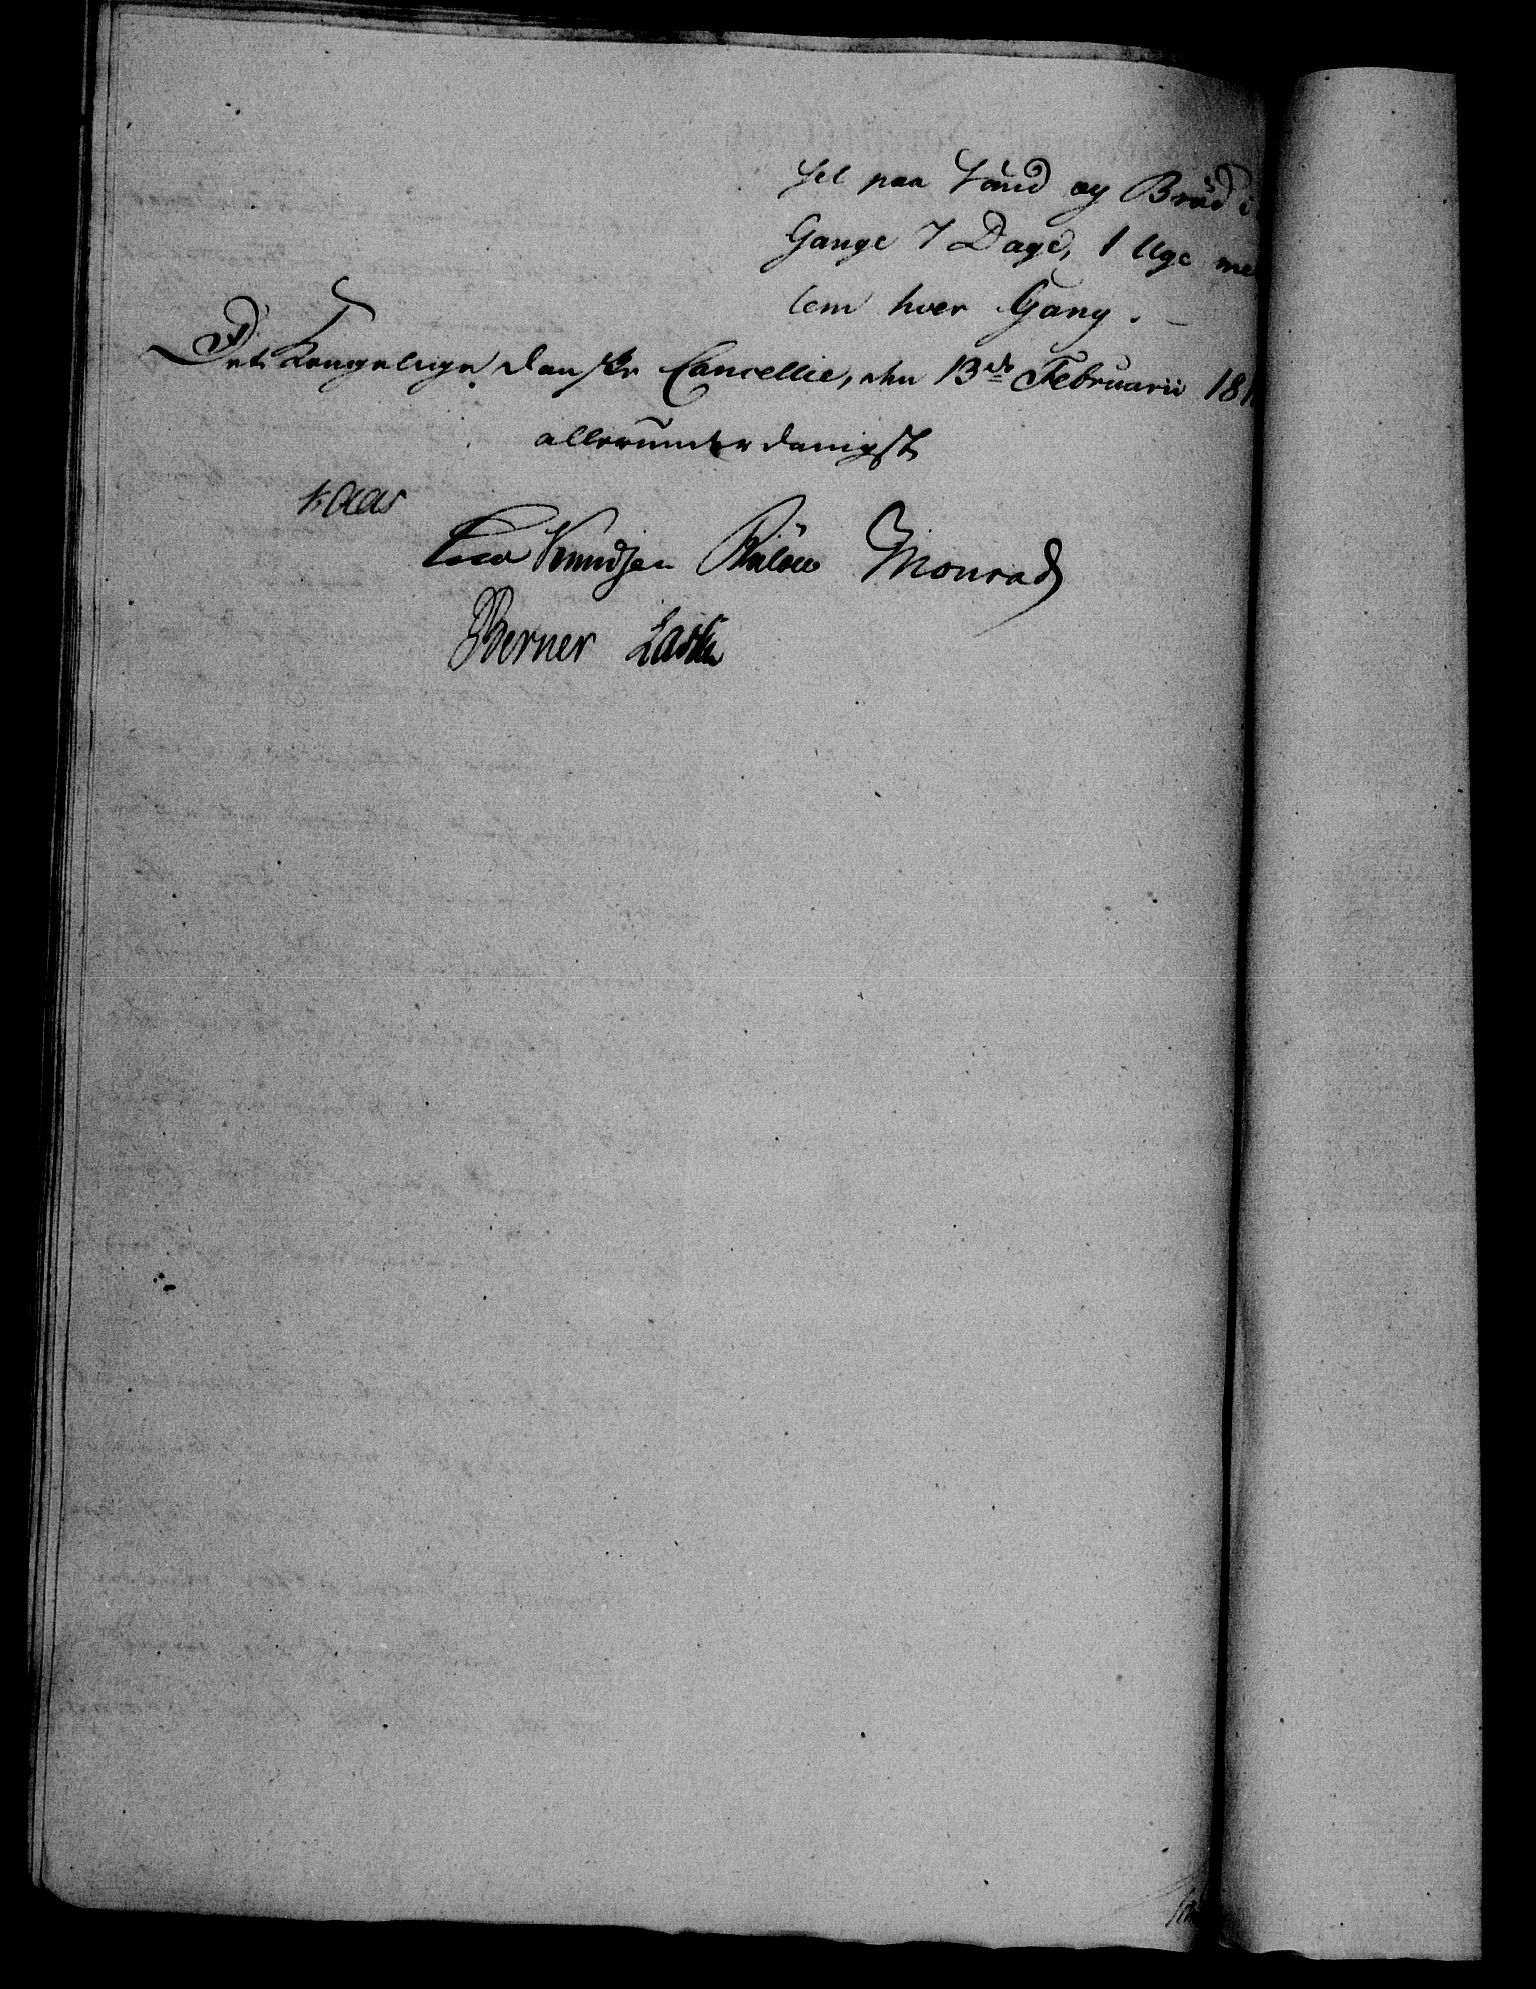 sel paa Vand og Brød i
Gange 7 Dage, 1 Uge mel
lem hver Gang.
Det Kongelige danske Cancellie, den 13de Februarii 181
allerunderdanigst
Kaas
Knudsen Bülow Monrad
Berner Lassen